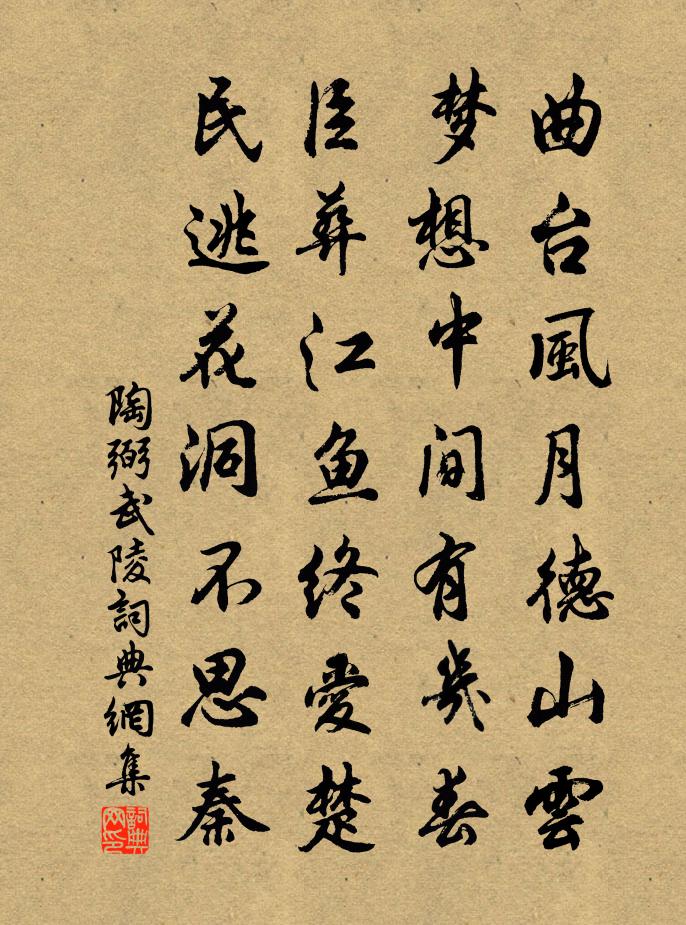 曲台風月德山雲
梦想中間有幾春
臣葬江鱼终愛楚
民逃花洞不思秦
陶弼武陵詞典網集
詞典网印